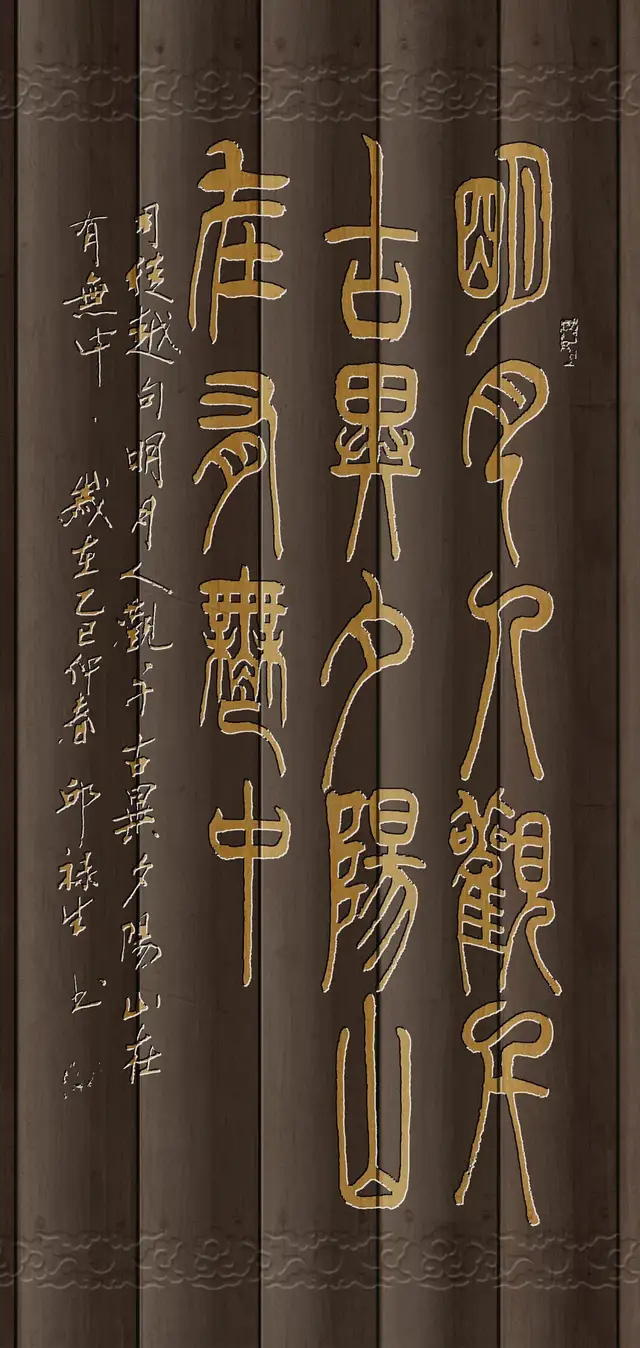 明月人觀千
古異夕陽山
在有無中
司徒越句明月人觀千古異夕陽山在
有無中．歲在乙巳仲春 邱禄生书